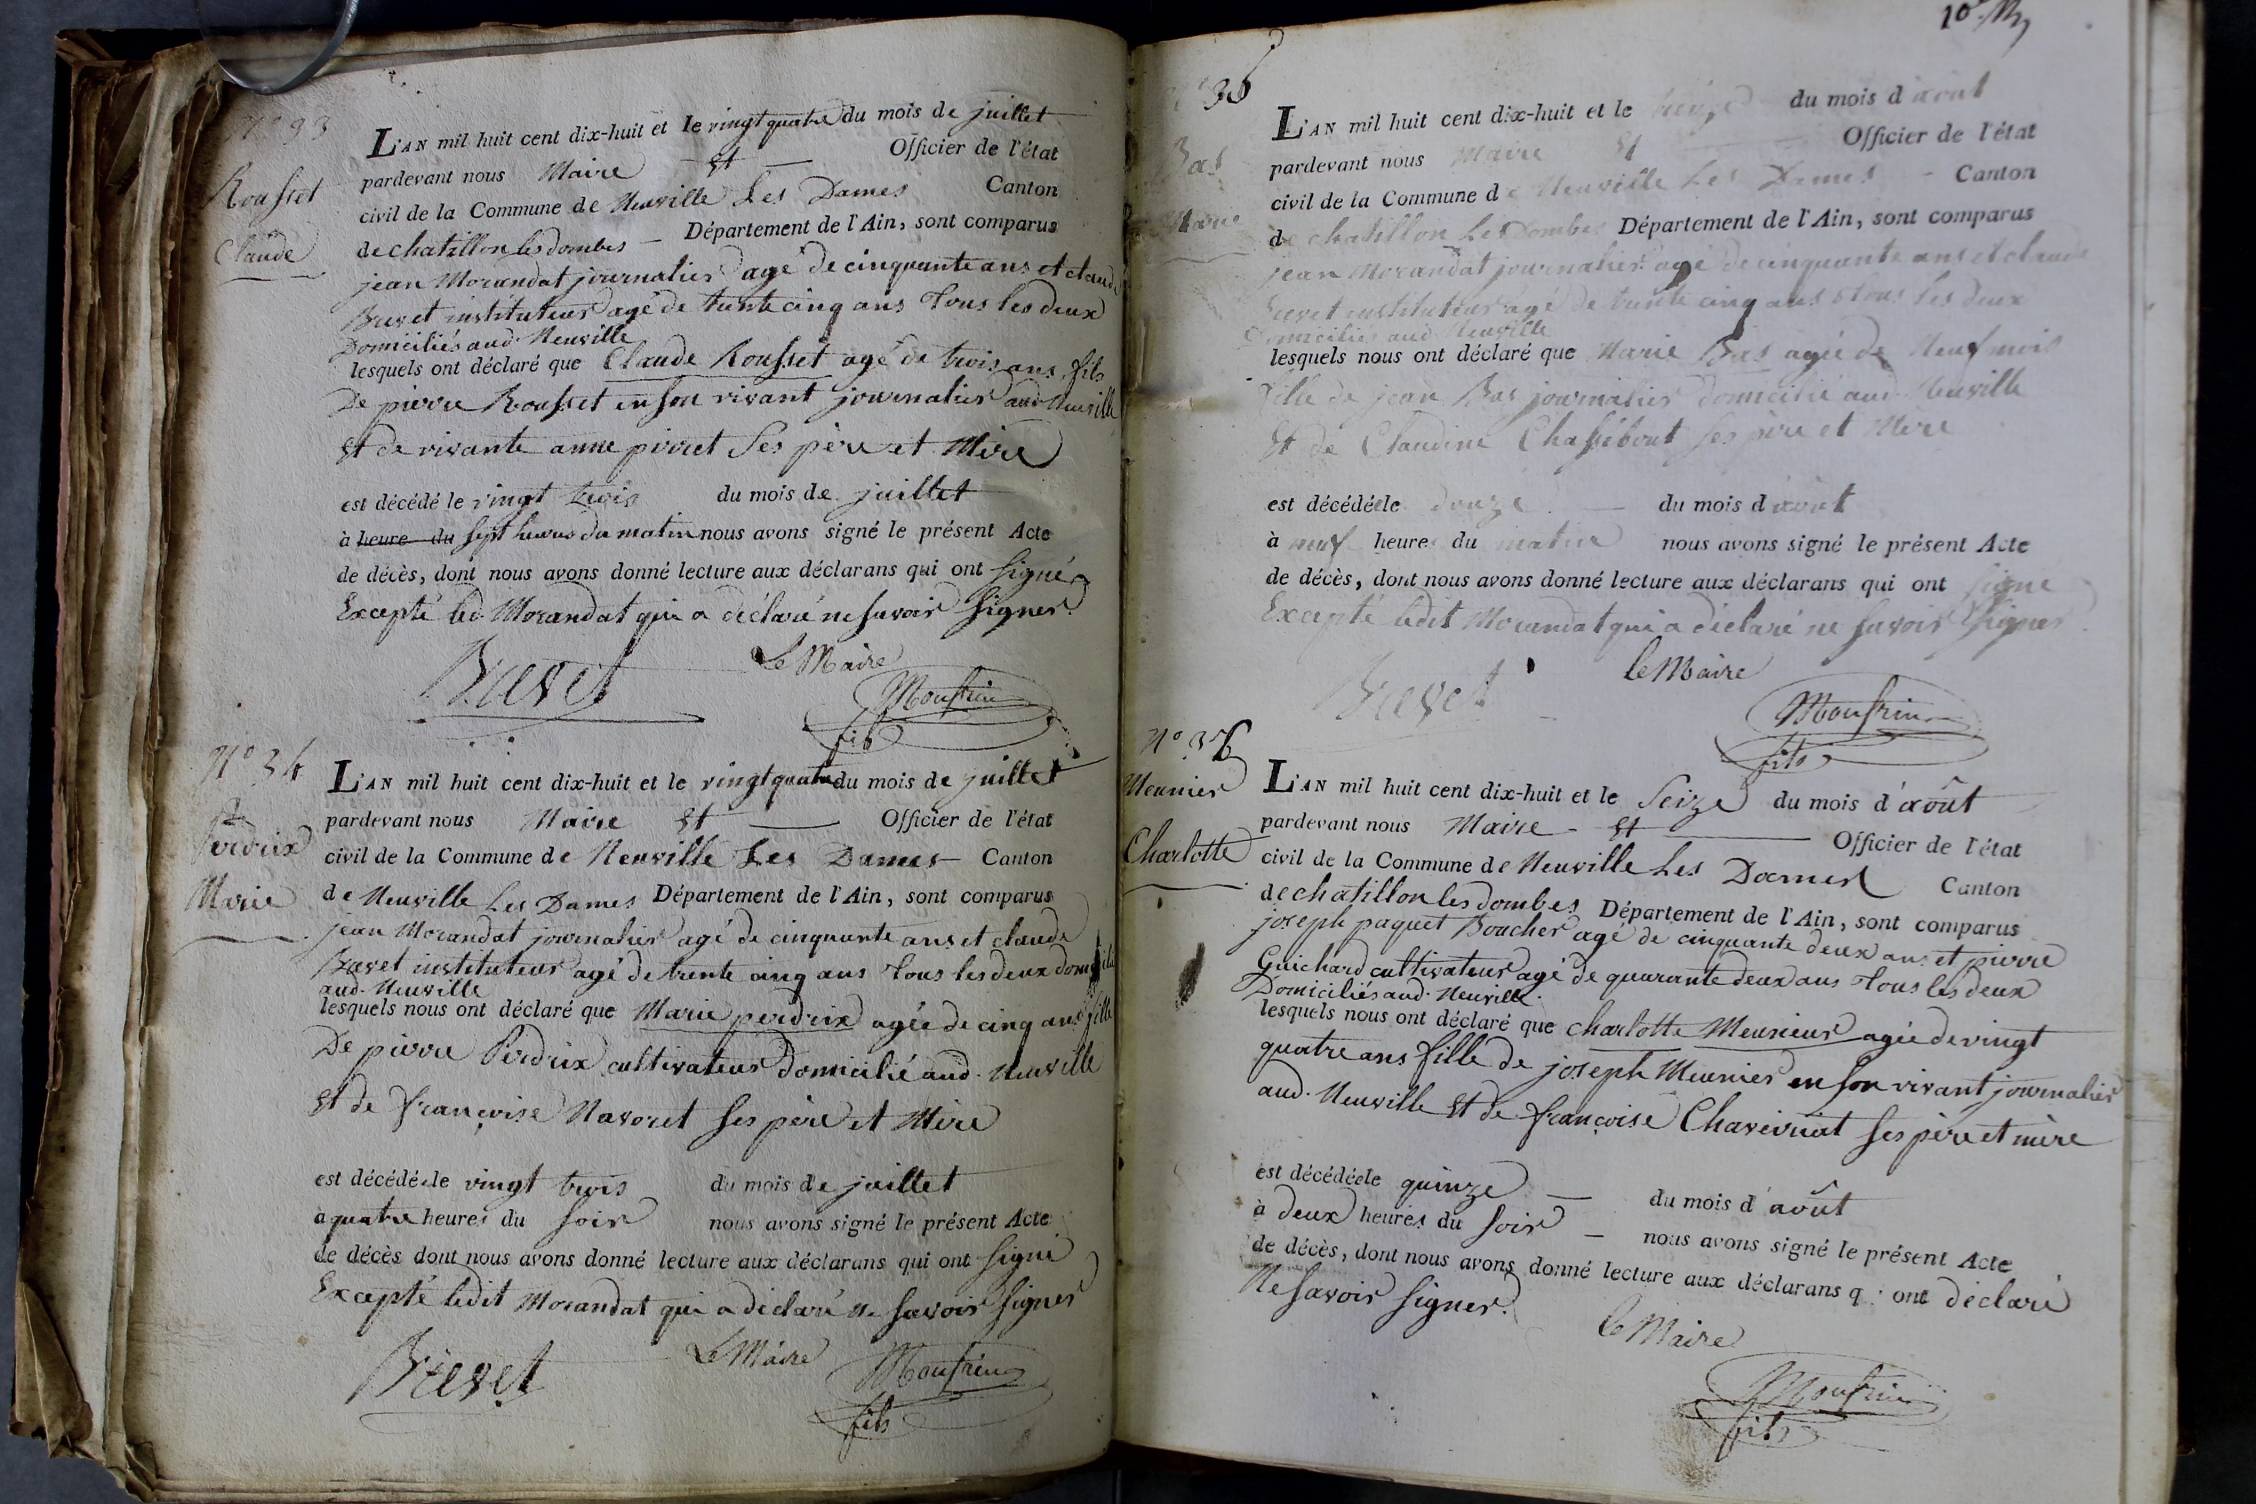 N° 33
Rousset
Claude
L'AN mil huit cent dix-huit et le vingt quatre du mois de juillet
pardevant nous Maire Et — Officier de l'état
civil de la Commune de Neuville Les Dames Canton
de chatillon les dombes — Département de l'Ain, sont comparus
jean Morandat journalier agé de cinquante ans et claude
Brevet instituteur agé de trente cinq ans Tous les deux
Domiciliés aud. Neuville
lesquels ont déclaré que Claude Rousset agé de trois ans fils
De pierre Rousset en son vivant journalier aud. Neuville
Et de vivante anne pivret Ses père et Mère
est décédé le vingt trois du mois de juillet
à heure du sept heures du matin nous avons signé le présent Acte
de décès, dont nous avons donné lecture aux déclarans qui ont signé
Excepté led. Morandat qui a déclaré ne savoir signer
Brevet Le Maire
Monfrin
fils
N° 34
Perdrix
Marie
L'AN mil huit cent dix-huit et le vingt quatre du mois de juillet
pardevant nous Maire Et — Officier de l'état
civil de la Commune de Neuville Les Dames — Canton
de Neuville Les Dames Département de l'Ain, sont comparus
jean Morandat journalier agé de cinquante ans et claude
Brevet instituteur agé de trente cinq ans Tous les deux
aud. Neuville
lesquels nous ont déclaré que Marie perdrix agée de cinq ans fille
De pierre Perdrix cultivateur domicilié aud. Neuville
Et de françoise Navoret Ses père et Mère
est décédée le vingt trois du mois de juillet
à quatre heures du soir nous avons signé le présent Acte
de décès dont nous avons donné lecture aux déclarans qui ont signé
Excepté ledit Morandat qui a déclaré ne savoir signer
Brevet Le Maire Monfrin
fils
N° 35
Bas
Marie
L'AN mil huit cent dix-huit et le treize du mois d'août
pardevant nous Maire Et — Officier de l'état
civil de la Commune de Neuville Les Dames - Canton
de chatillon Les Dombes Département de l'Ain, sont comparus
jean Morandat journalier agé de cinquante ans et claude
Brevet instituteur agé de trente cinq ans Tous les deux
Domiciliés aud. Neuville
lesquels nous ont déclaré que Marie Bas agée de Neuf mois
fille de jean Bas journalier domicilié aud. Neuville
Et de Claudine Chassibout ses père et Mère
est décédée le douze — du mois d'août
à neuf heures du matin nous avons signé le présent Acte
de décès, dont nous avons donné lecture aux déclarans qui ont signé
Excepté ledit Morandat qui a déclaré ne savoir signer
Brevet le Maire
Monfrin
fils
N° 36
Meunier
Charlotte
L'AN mil huit cent dix-huit et le Seize du mois d'août
pardevant nous Maire - Et — Officier de l'état
civil de la Commune de Neuville Les Dames Canton
de chatillon les dombes Département de l'Ain, sont comparus
joseph paquet Boucher agé de cinquante deux ans et pierre
Guichard cultivateur agé de quarante deux ans Tous les deux
Domiciliés aud. Neuville.
lesquels nous ont déclaré que Charlotte Meunier agée de vingt
quatre ans fille de joseph Meunier en son vivant journalier
aud. Neuville Et de françoise Charvériat ses père et mère
est décédée le quinze — du mois d'août
à deux heures du soir — nous avons signé le présent Acte
de décès, dont nous avons donné lecture aux déclarans qui ont déclaré
Ne savoir signer.
le Maire
Monfrin
fils